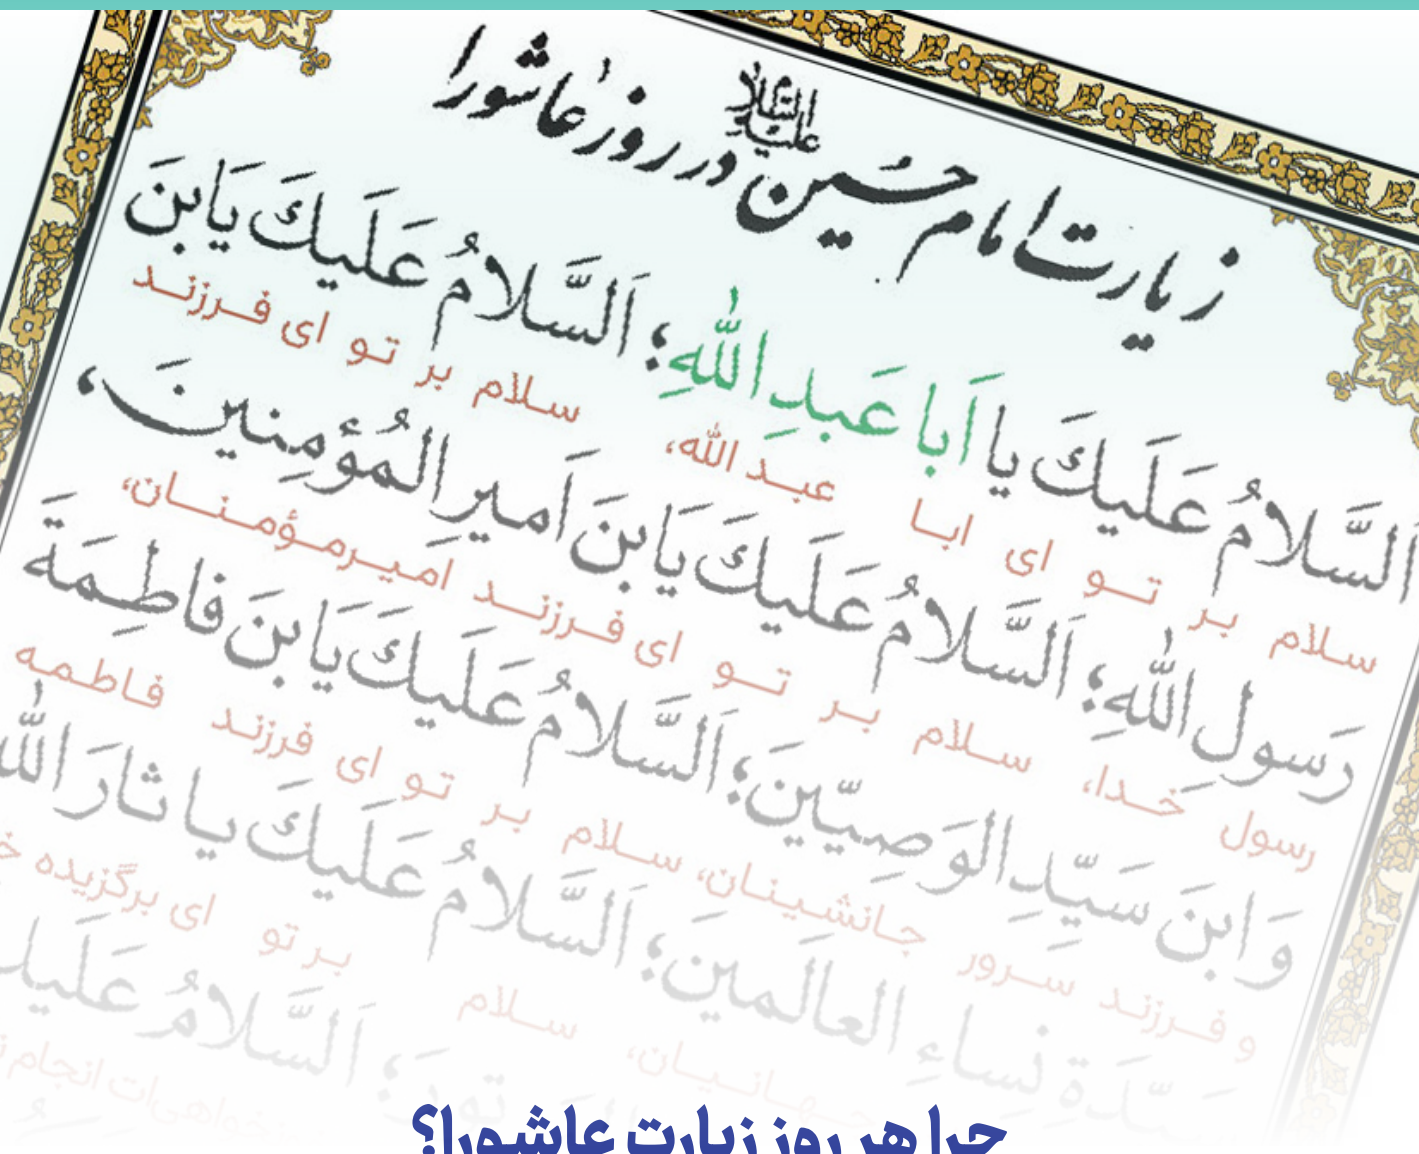 زیارت امام حسین علیه‌السلام در روز عاشورا
اَلسَّلامُ عَلَیكَ یا اَبا عَبدِ اللّٰهِ؛ اَلسَّلامُ عَلَیكَ یَابنَ
سلام بر تو ای ابا عبد الله، سلام بر تو ای فرزند
رَسولِ اللّٰهِ؛ اَلسَّلامُ عَلَیكَ یَابنَ اَمیرِ المُؤمِنینَ،
رسول خدا، سلام بر تو ای فرزند امیرمؤمنان،
وَ ابنَ سَیِّدِ الوَصِیّینَ؛ اَلسَّلامُ عَلَیكَ یَابنَ فاطِمَةَ
و فرزند سرور جانشینان، سلام بر تو ای فرزند فاطمه
سَیِّدَةِ نِساءِ العالَمینَ؛ اَلسَّلامُ عَلَیكَ یا ثارَ اللّٰه
جهانیان، سلام بر تو ای برگزیده
اَلسَّلامُ
انجام
چرا هر روز زیارت عاشورا؟